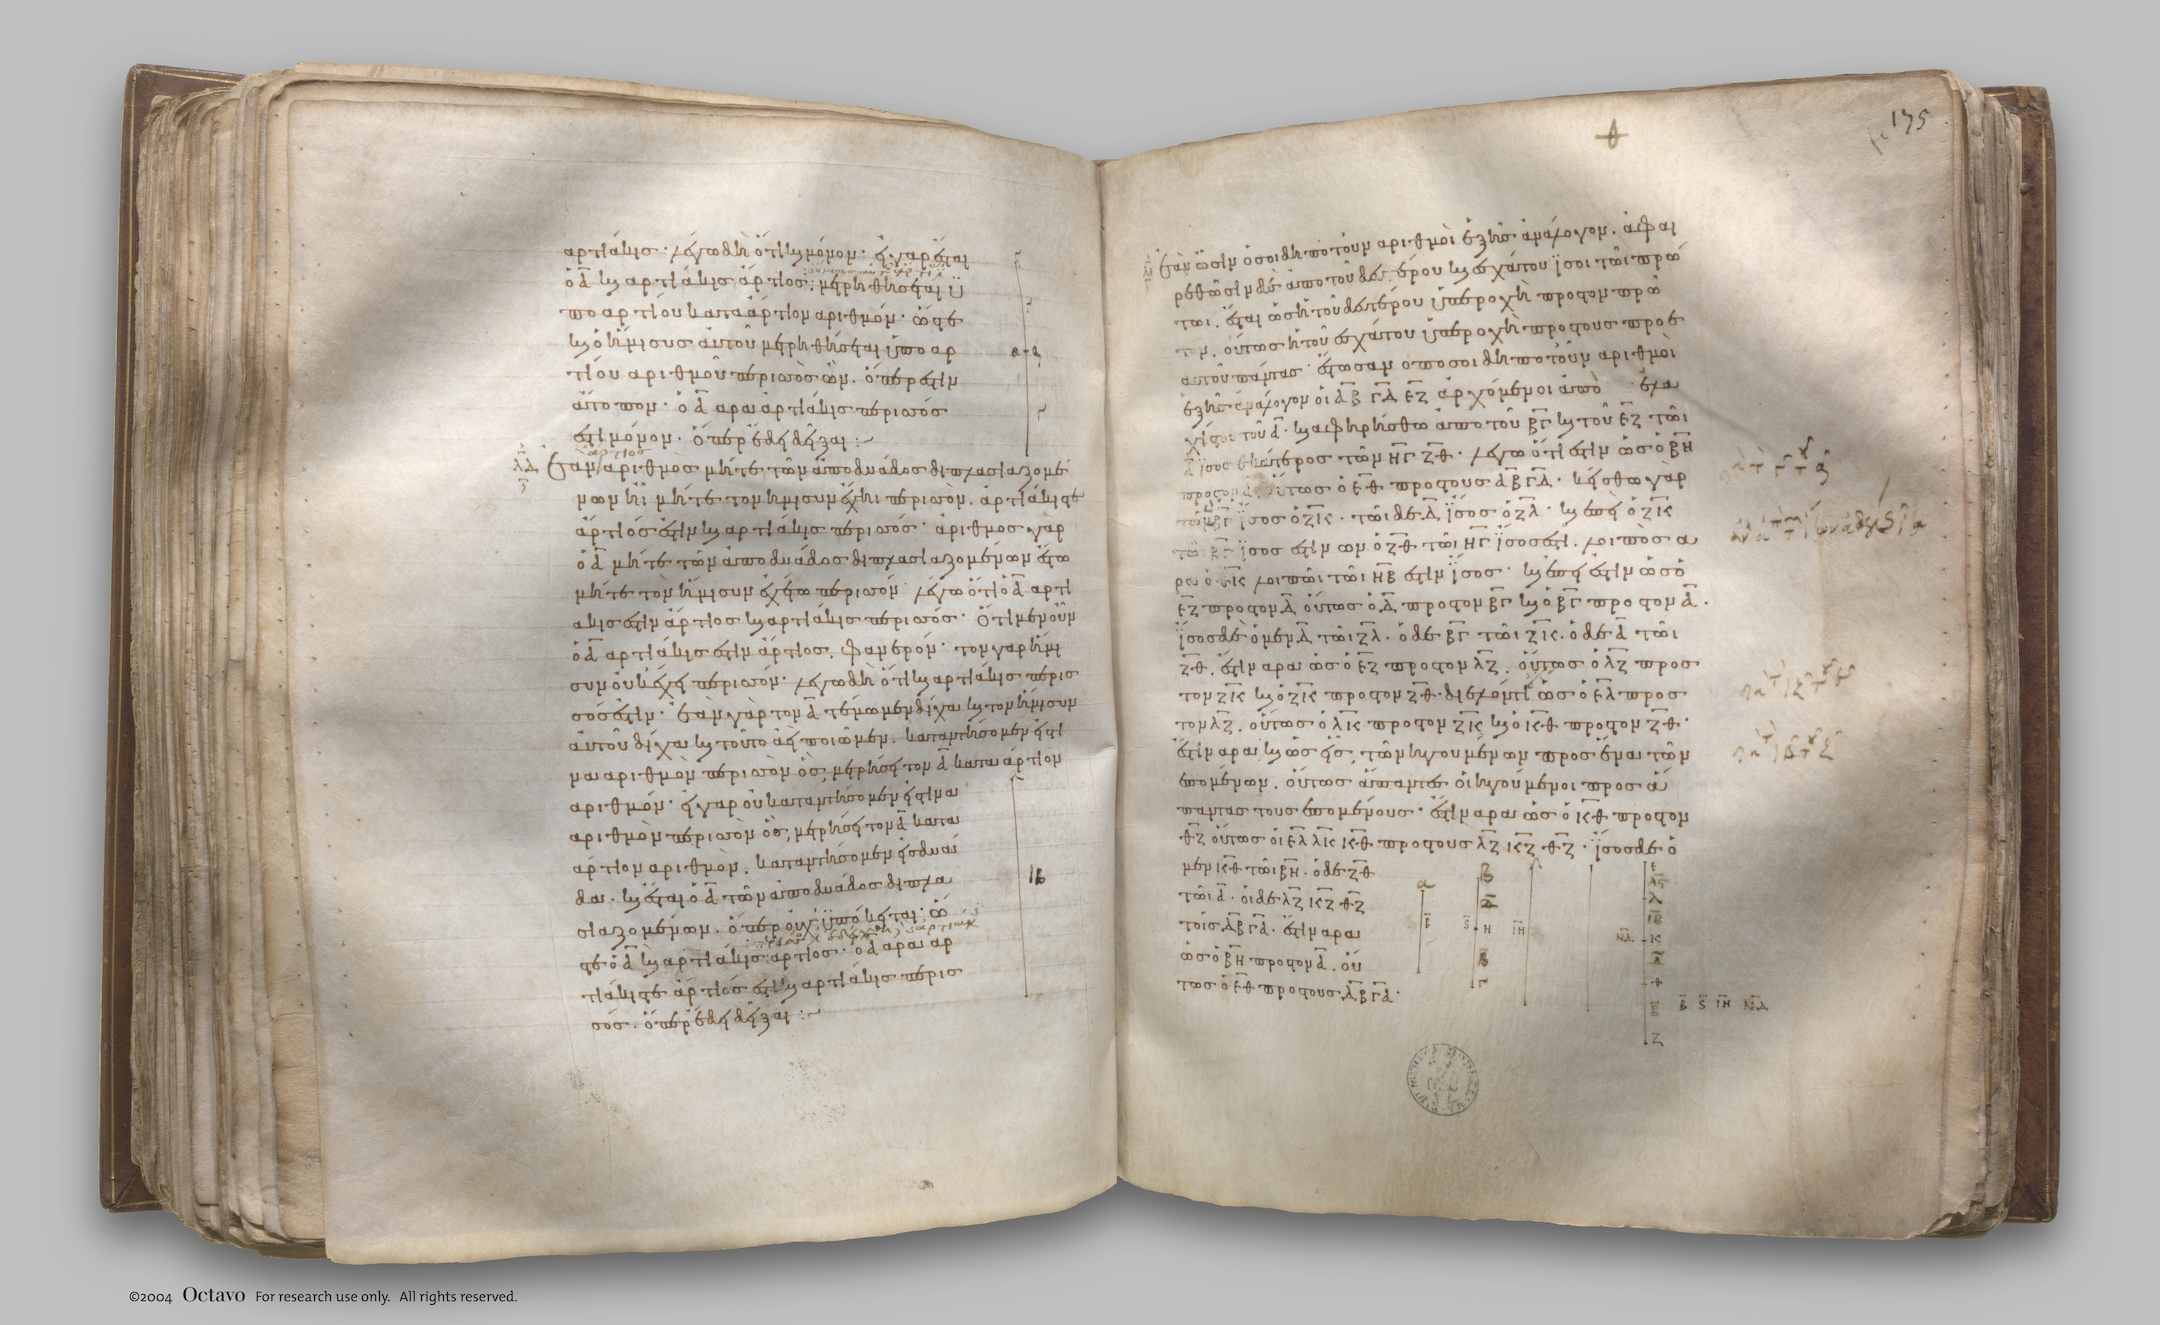 ἀρτιάκις· λέγω δὴ ὅτι καὶ μόνον· εἰ γὰρ ἔσται
ὁ Α καὶ ἀρτιάκις ἄρτιος· μετρηθήσεται ὑ
πὸ ἀρτίου κατὰ ἄρτιον ἀριθμόν· ὥστε
καὶ ὁ ἥμισυς αὐτοῦ μετρηθήσεται ὑπὸ ἀρ
τίου ἀριθμοῦ περισσὸς ὤν. ὅπερ ἐστὶν
ἄτοπον· ὁ Α ἄρα ἀρτιάκις περισσός
ἐστι μόνον· ὅπερ ἔδει δεῖξαι :~
ἄρτιος
λδ Ἐὰν ἀριθμὸς μήτε τῶν ἀπὸ δυάδος διπλασιαζομέ
νων ἦι μήτε τὸν ἥμισυν ἔχηι περισσόν. ἀρτιάκις τε
ἄρτιός ἐστιν καὶ ἀρτιάκις περισσός· ἀριθμὸς γὰρ
ὁ Α μήτε τῶν ἀπὸ δυάδος διπλασιαζομένων ἔστω
μήτε τὸν ἥμισυν ἐχέτω περισσόν· λέγω ὅτι ὁ Α ἀρτι
άκις ἐστιν ἄρτιος καὶ ἀρτιάκις περισσός· ὅτι μὲν οὖν
ὁ Α ἀρτιάκις ἐστὶν ἄρτιος, φανερόν· τὸν γὰρ ἥμι
συν οὐκ ἔχει περισσόν· λέγω δὴ ὅτι καὶ ἀρτιάκις περισ
σός ἐστιν· ἐὰν γὰρ τὸν Α τέμωμεν δίχα καὶ τὸν ἥμισυν
αὐτοῦ δίχα καὶ τοῦτο ἀεὶ ποιῶμεν. καταντήσομεν εἴς τι
να ἀριθμὸν περισσὸν ὃς μετρήσει τὸν Α κατὰ ἄρτιον
ἀριθμόν· εἰ γὰρ οὐ καταντήσομεν εἴς τινα
ἀριθμὸν περισσὸν ὃς, μετρήσει τὸν Α κατὰ
ἄρτιον ἀριθμὸν, καταντήσομεν εἰς δυά
δα· καὶ ἔσται ὁ Α τῶν ἀπὸ δυάδος διπλα
σιαζομένων. ὅπερ οὐχ ὑπόκειται· ὥ
στε ὁ Α καὶ ἀρτιάκις ἄρτιος· ὁ Α ἄρα ἀρ
τιάκις τε ἄρτιός ἐστι καὶ ἀρτιάκις περισ
σός. ὅπερ ἔδει δεῖξαι :~
ΙΒ
175
Ἐὰν ὦσιν ὁσοιδηποτοῦν ἀριθμοὶ ἑξῆς ἀνάλογον. ἀφαι
ρεθῶσιν δὲ ἀπὸ τοῦ δευτέρου καὶ ἐσχάτου ἴσοι τῶι πρώ
τωι. ἔσται ὡς ἡ τοῦ δευτέρου ὑπεροχὴ πρὸς τὸν πρῶ
τον. οὕτως ἡ τοῦ ἐσχάτου ὑπεροχὴ πρὸς τοὺς πρὸ ἑ
αυτοῦ πάντας· ἔστωσαν ὁποσοιδηποτοῦν ἀριθμοὶ
ἑξῆς ἀνάλογον οἱ Α ΒΓ Δ ΕΖ ἀρχόμενοι ἀπὸ ἐλα
χίστου τοῦ Α· καὶ ἀφηρήσθω ἀπὸ τοῦ ΒΓ καὶ τοῦ ΕΖ τῶι
Α ἴσος ἑκάτερος τῶν ΗΓ ΖΘ· λέγω ὅτι ἐστὶν ὡς ὁ ΒΗ
πρὸς τὸν Α οὕτως ὁ ΕΘ πρὸς τοὺς Α ΒΓ Δ· κείσθω γὰρ
τῶι ΒΓ ἴσος ὁ ΖΚ· τῶι δὲ Δ ἴσος ὁ ΖΛ· καὶ ἐπεὶ ὁ ΖΚ
τῶι ΒΓ ἴσος ἐστὶν ὧν ὁ ΖΘ τῶι ΗΓ ἴσος ἐστί. λοιπὸς ἄ
ρα ὁ ΘΚ λοιπῶι τῶι ΗΒ ἐστὶν ἴσος· καὶ ἐπεί ἐστιν ὡς ὁ
ΕΖ πρὸς τὸν Δ οὕτως ὁ Δ πρὸς τὸν ΒΓ καὶ ὁ ΒΓ πρὸς τὸν Α.
ἴσος δὲ ὁ μὲν Δ τῶι ΖΛ. ὁ δὲ ΒΓ τῶι ΖΚ. ὁ δὲ Α τῶι
ΖΘ. ἔστιν ἄρα ὡς ὁ ΕΖ πρὸς τὸν ΛΖ. οὕτως ὁ ΛΖ πρὸς
τὸν ΖΚ καὶ ὁ ΖΚ πρὸς τὸν ΖΘ· διελόντι ὡς ὁ ΕΛ πρὸς
τὸν ΛΖ. οὕτως ὁ ΛΚ πρὸς τὸν ΖΚ καὶ ὁ ΚΘ πρὸς τὸν ΖΘ·
ἔστιν ἄρα καὶ ὡς εἷς τῶν ἡγουμένων πρὸς ἕνα τῶν
ἑπομένων. οὕτως ἅπαντες οἱ ἡγούμενοι πρὸς ἅ
παντας τοὺς ἑπομένους· ἔστιν ἄρα ὡς ὁ ΚΘ πρὸς τὸν
ΘΖ οὕτως οἱ ΕΛ ΛΚ ΚΘ πρὸς τοὺς ΛΖ ΚΖ ΘΖ· ἴσος δὲ ὁ
μὲν ΚΘ τῶι ΒΗ. ὁ δὲ ΖΘ
τῶι Α· οἱ δὲ ΛΖ ΚΖ ΘΖ
τοῖς Δ ΒΓ Α· ἔστιν ἄρα
ὡς ὁ ΒΗ πρὸς τὸν Α. οὕ
τως ὁ ΕΘ πρὸς τοὺς Δ ΒΓ Α·
Β Ϛ ΙΗ ΝΔ
©2004 Octavo For research use only. All rights reserved.